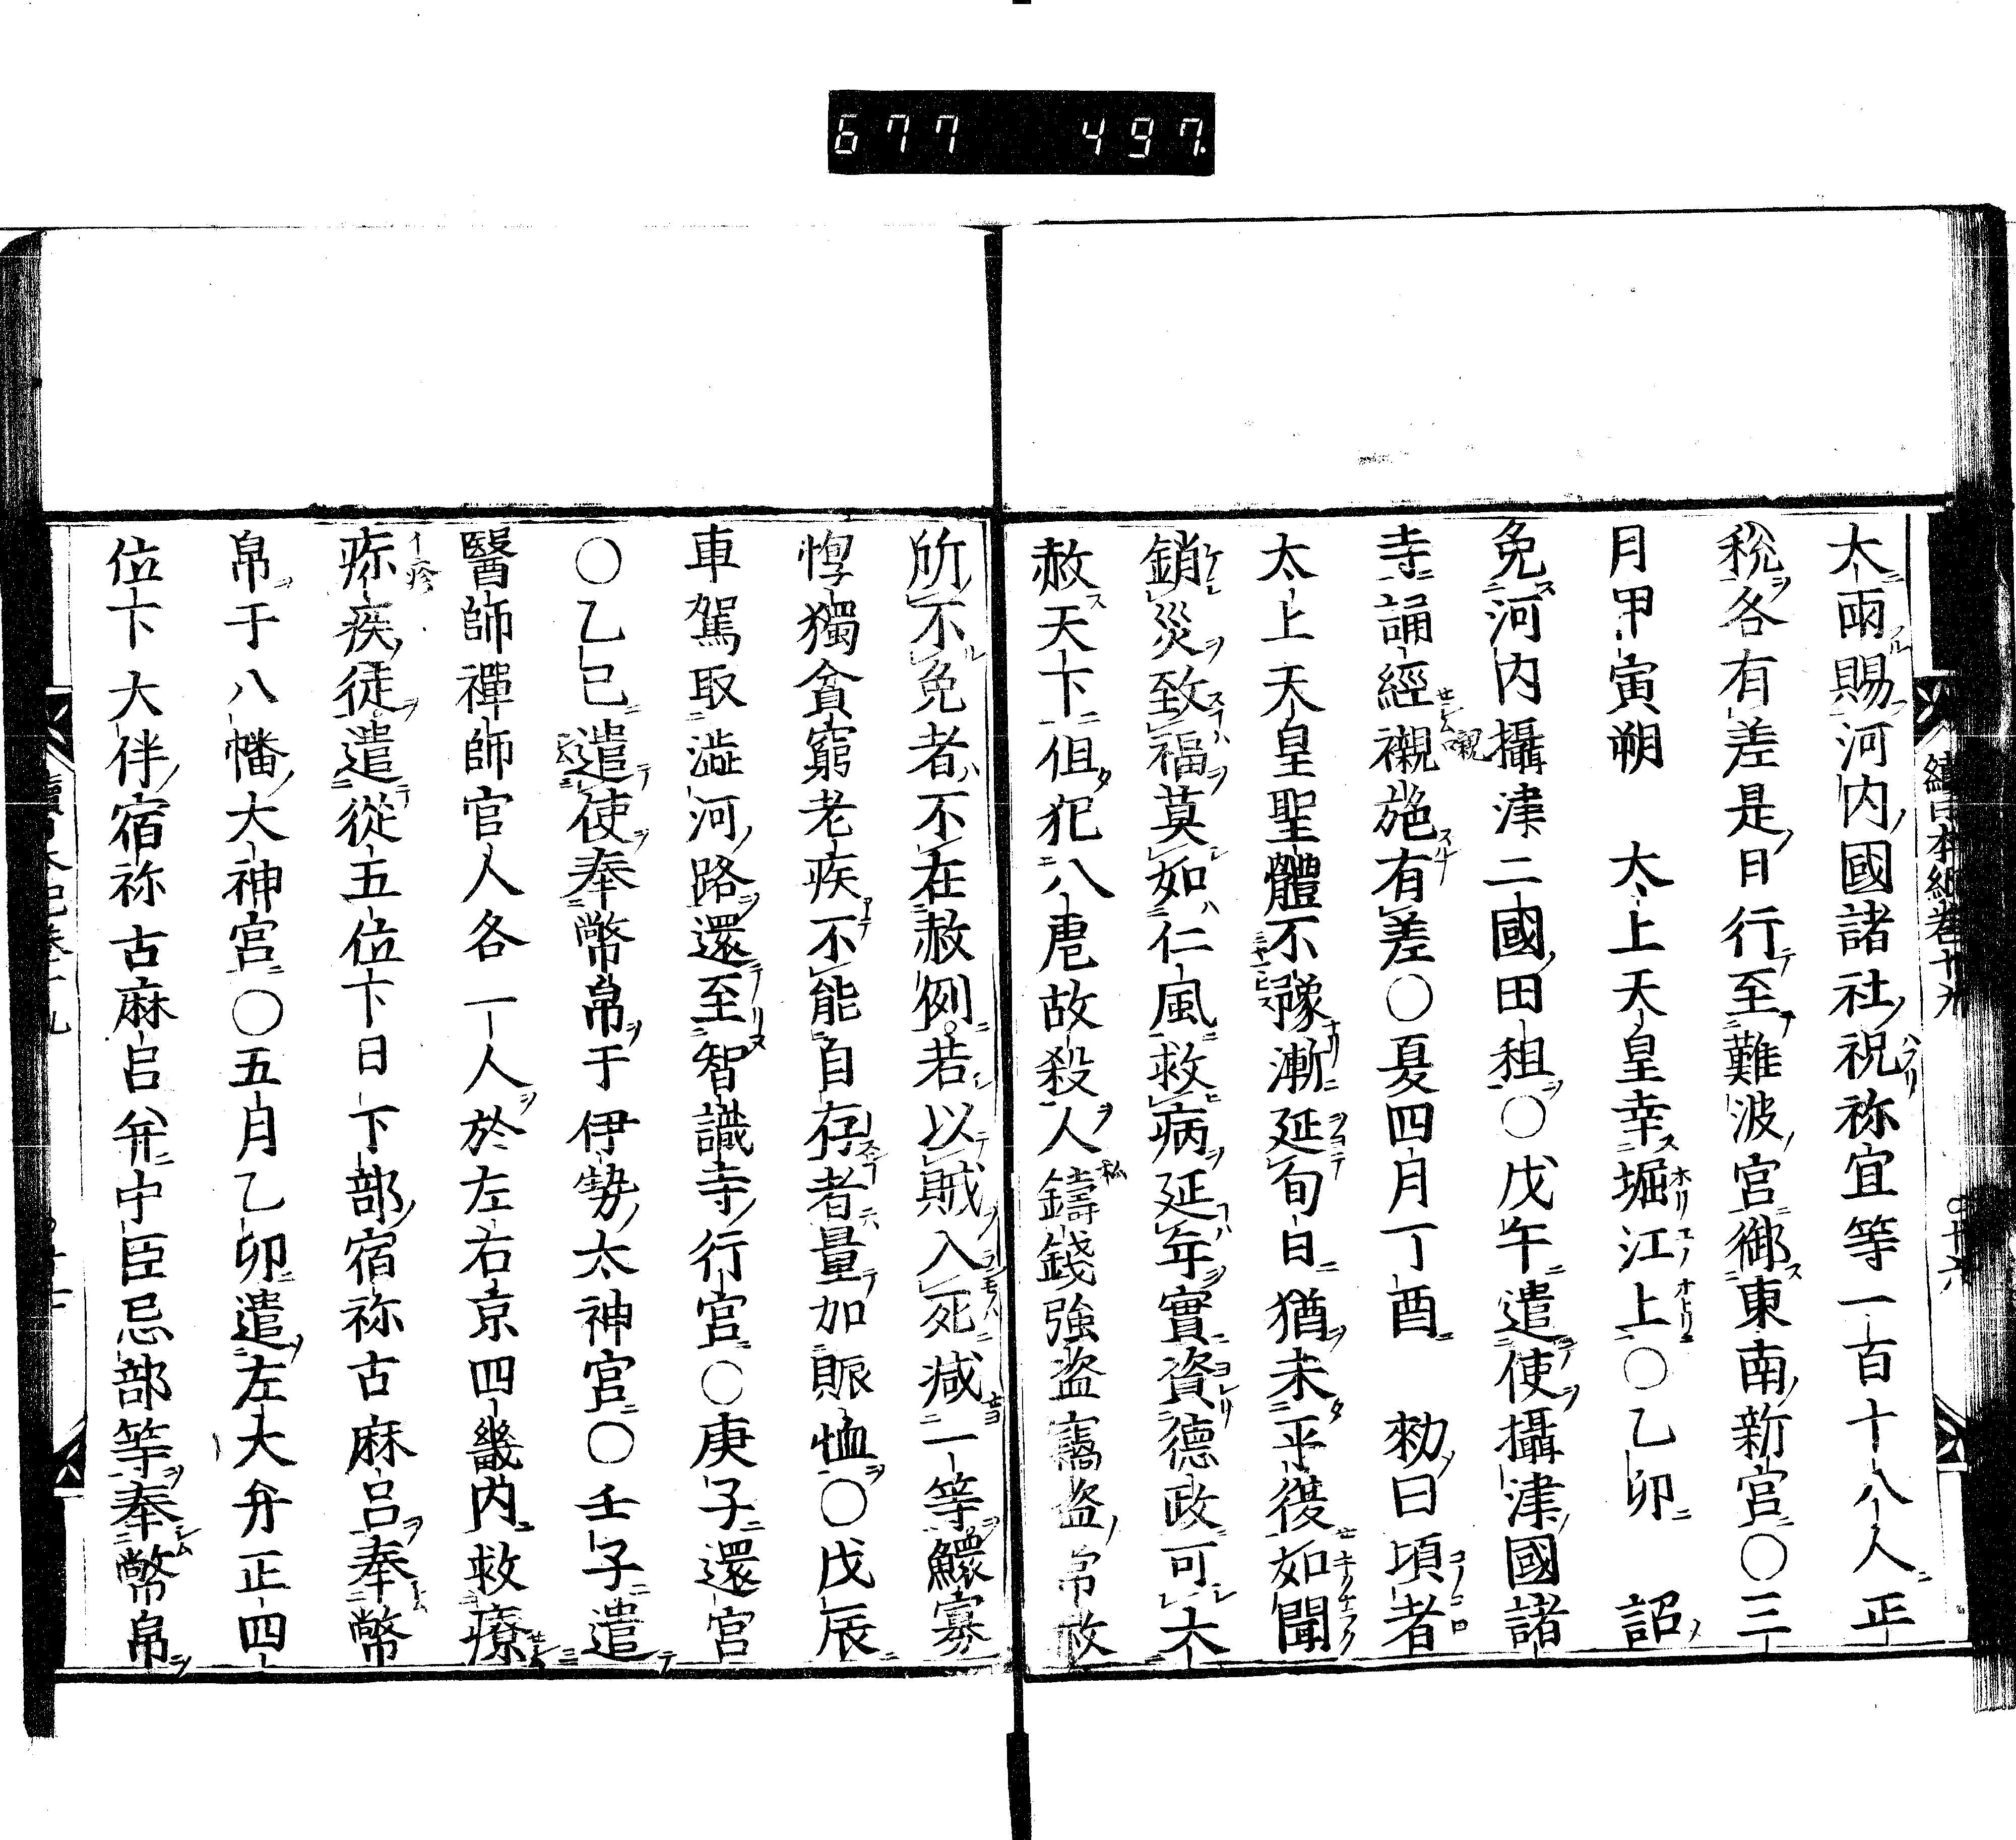 677 497.
續日本紀卷十九
大雨賜河内國諸社祝祢宜等一百十八人正
税各有差是日行至難波宮御東南新宮〇三
月甲寅朔 太上天皇幸堀江上〇乙卯 詔
免河内攝津二國田租〇戊午遣使攝津國諸
寺誦經襯施有差〇夏四月丁酉 勑曰頃者
太上天皇聖體不豫漸延旬日猶未平復如聞
銷災致福莫如仁風救病延年實資德政可大
赦天下但犯八虐故殺人私鑄錢強盗竊盗常赦
所不免者不在赦例若以贓入死減一等鰥寡
惸獨貧窮老疾不能自存者量加賑恤〇戊辰
車駕取澁河路還至智識寺行宮〇庚子還宮
〇乙巳遣使奉幣帛于伊勢太神宮〇壬子遣
醫師禪師官人各一人於左右京四畿内救療
疹疾徒遣從五位下日下部宿祢古麻呂奉幣
帛于八幡大神宮〇五月乙卯遣左大弁正四
位下大伴宿祢古麻呂并中臣忌部等奉幣帛